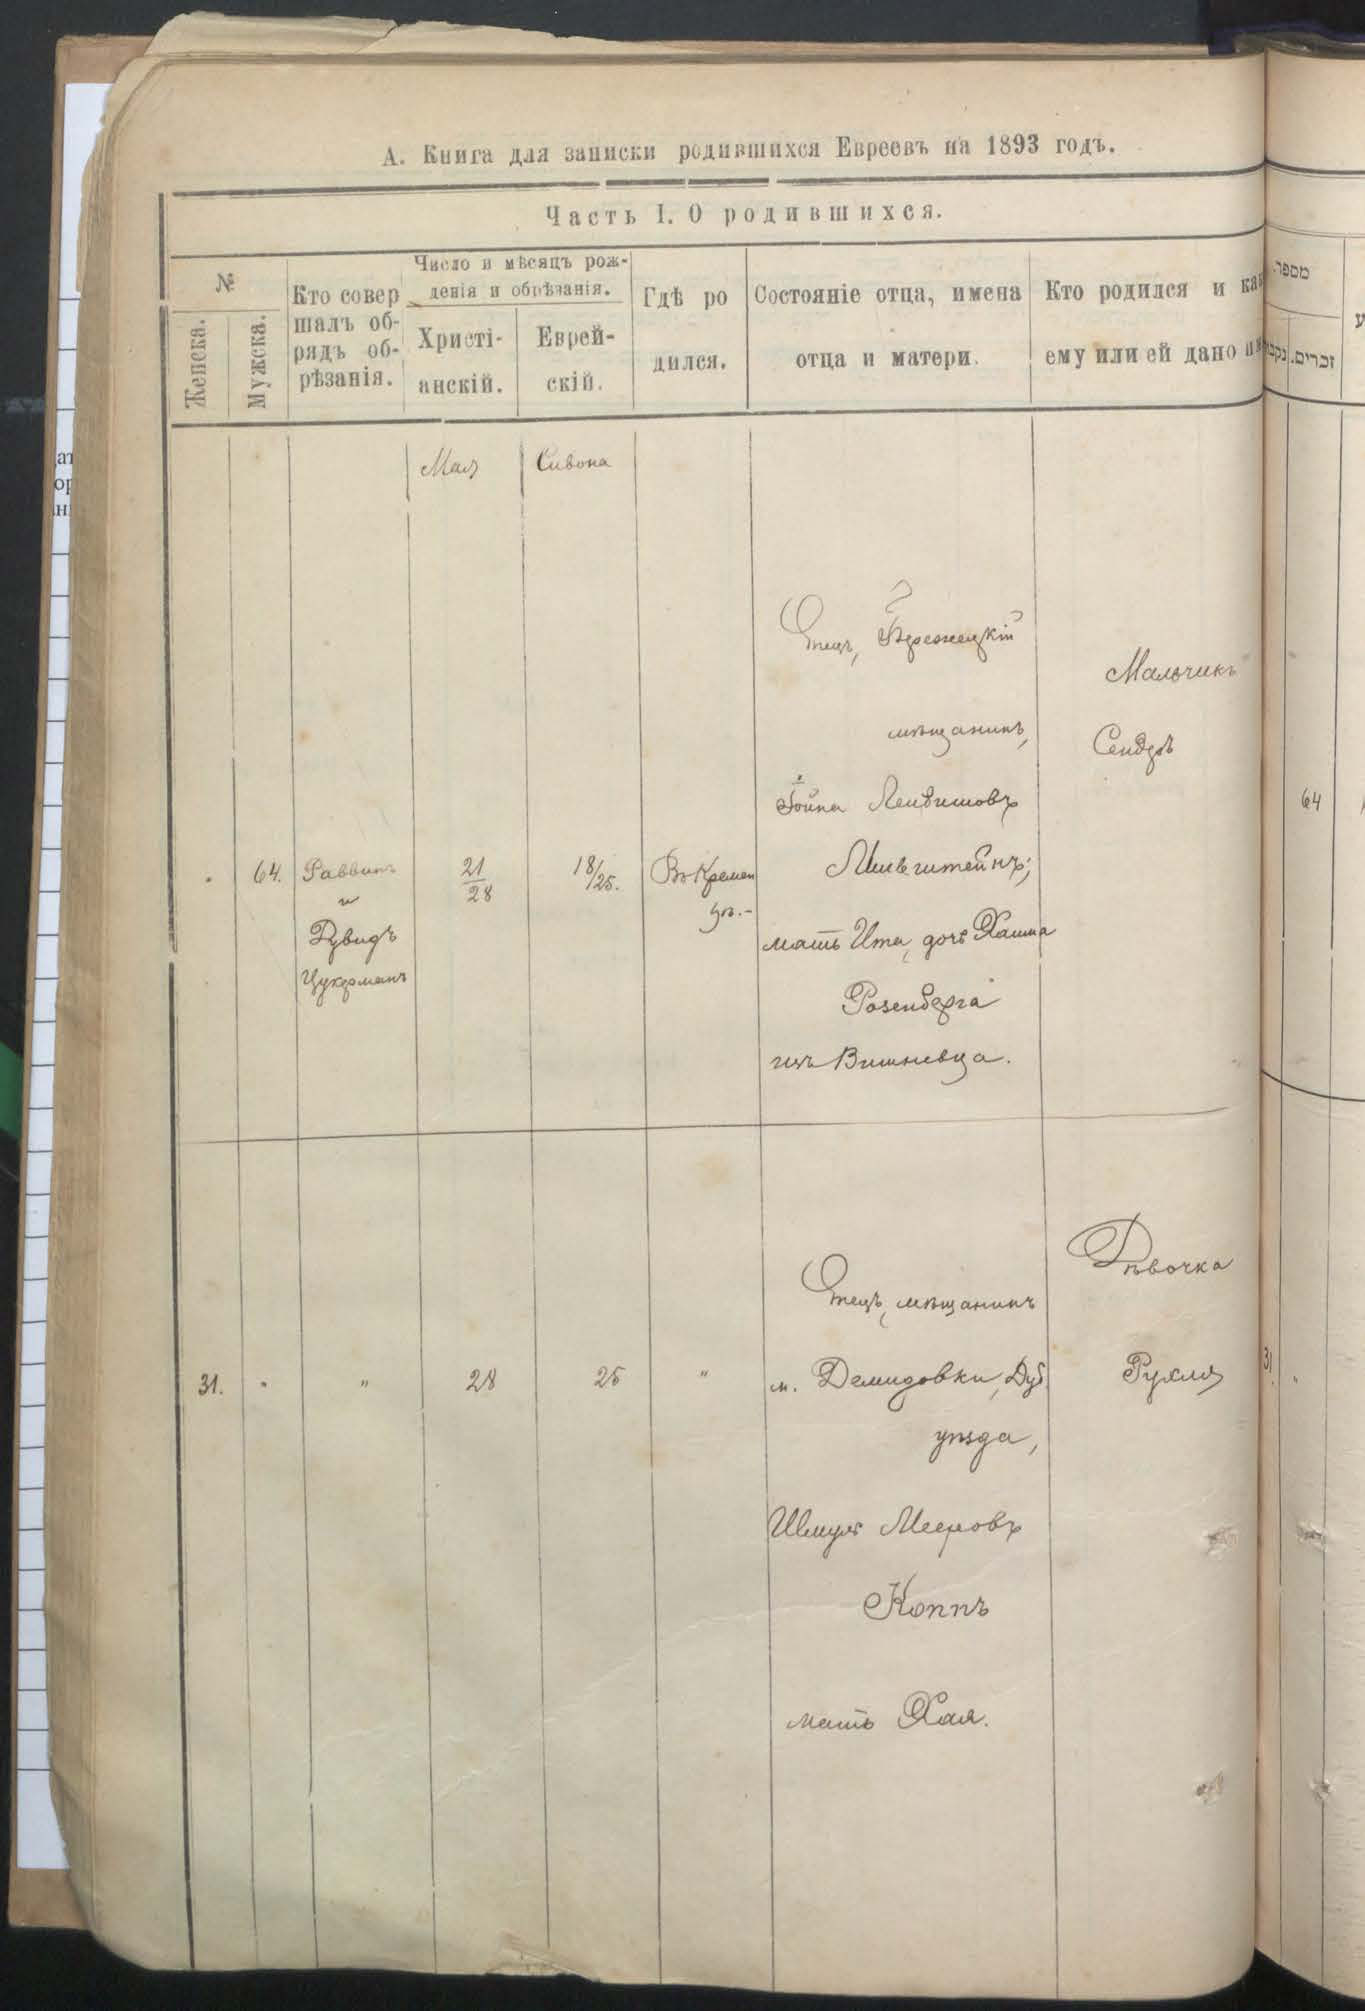 А. Книга для записки родившихся Евреевъ на 1893 годъ.
Часть I. О родившихся.
№
Женска.
Мужска.
Кто совер
шалъ об-
рядъ об-
рѣзанія.
Число и мѣсяцъ рож-
денія и обрѣзанія.
Христі-
анскій.
Еврей-
скій.
Гдѣ ро
дился.
Состояніе отца, имена
отца и матери.
Кто родился и
ему или ей дано
מספר.
זכרים.
Мая
Сивона
64.
Раввинъ
и
Дувидъ
Цукерманъ
21
28
18/25.
Въ Кремен
цѣ.-
Отецъ,
мѣщанинъ,
Іойна
мать Ита, дочь Хаима
Розенберга
изъ Вишневца.
Мальчикъ
Сендеръ
64
31.
"
28
25
"
Отецъ, мѣщанинъ
м. Демидовки, Дуб.
уѣзда,
Шмуль Мееровъ
Коппъ
мать Хая.
Дѣвочка
Рухля
31